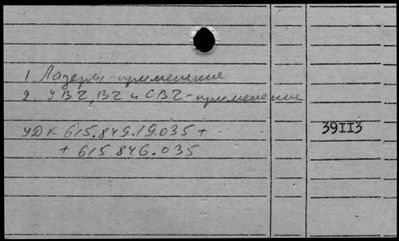 1 Лазеры - применение
2 УВЧ, ВЧ и СВЧ - применение
УДК 615.849.19.035 +
39II3
+ 615.846.035